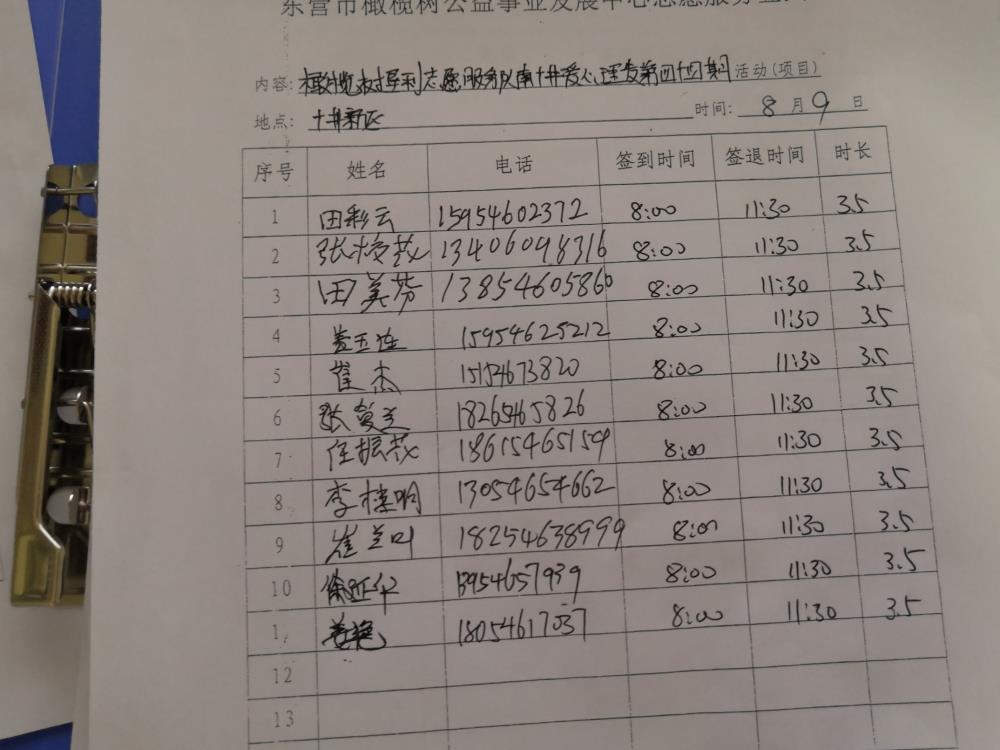 东营市橄榄树公益事业发展中心志愿服务
内容: 橄榄树犀利志愿服务队南十井爱心理发第四十四期 活动(项目)
地点: 十井新区 时间: 8 月 9 日
序号 姓名 电话 签到时间 签退时间 时长
1 田彩云 15954602372 8:00 11:30 3.5
2 张 13406098316 8:00 11:30 3.5
3 田美芬 13854605860 8:00 11:30 3.5
4 15954625212 8:00 11:30 3.5
5 崔杰 15154673820 8:00 11:30 3.5
6 张 18265465826 8:00 11:30 3.5
7 任振茂 18615465159 8:00 11:30 3.5
8 李桂明 13054654662 8:00 11:30 3.5
9 崔兰叶 18254638999 8:00 11:30 3.5
10 徐延华 13954657939 8:00 11:30 3.5
1 18054617037 8:00 11:30 3.5
12
13